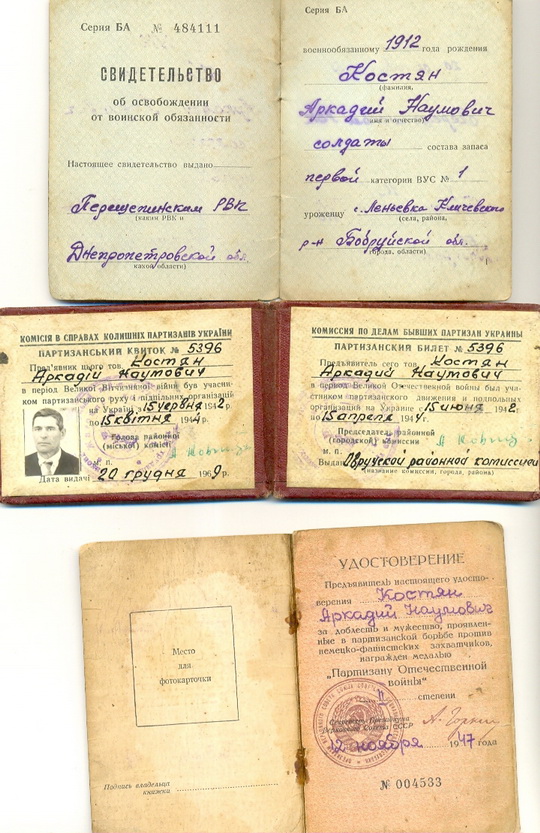 Серия БА № 484111
СВИДЕТЕЛЬСТВО
об освобождении
от воинской обязанности
Настоящее свидетельство выдано
Перещепинскам РВК
(каким РВК и
Днепропетровской обл.
какой области)
Серия БА
военнообязанному 1912 года рождения
Костян
(фамилия,
Аркадий Наумович
имя и отчество)
солдаты состава запаса
первой категории ВУС № 1
уроженцу с. Кличевского
(села, района,
р-н Бобруйской обл.
города, области)
КОМІСІЯ В СПРАВАХ КОЛИШНІХ ПАРТИЗАНІВ УКРАЇНИ
ПАРТИЗАНСЬКИЙ КВИТОК № 5396
Пред'явник цього тов. Костян
Аркадій Наумович
в період Великої Вітчизняної війни був учасни-
ком партизанського руху і підпільних організацій
на Україні з 15 червня 1942 р.
по 15 квітня 1944 р.
Голова районної
(міської) комісії
м. п.
Дата видачі 20 грудня 1969 р.
КОМИССИЯ ПО ДЕЛАМ БЫВШИХ ПАРТИЗАН УКРАИНЫ
ПАРТИЗАНСКИЙ БИЛЕТ № 5396
Предъявитель сего тов. Костян
Аркадий Наумович
в период Великой Отечественной войны был уча-
стником партизанского движения и подпольных
организаций на Украине с 15 июня 1942 г.
по 15 апреля 1944 г.
Председатель районной
(городской) комиссии
м. п.
Выдан Овручской районной комиссией
(название комиссии, города, района)
Место
для
фотокарточки
Подпись владельца
книжки
УДОСТОВЕРЕНИЕ
Предъявитель настоящего удосто-
верения Костян
Аркадий Наумович
за доблесть и мужество, проявлен-
ные в партизанской борьбе против
немецко-фашистских захватчиков,
награжден медалью
„Партизану Отечественной
войны"
II степени
Секретарь Президиума
Верховного Совета СССР А. Горкин
12 ноября 1947 года
№ 004533